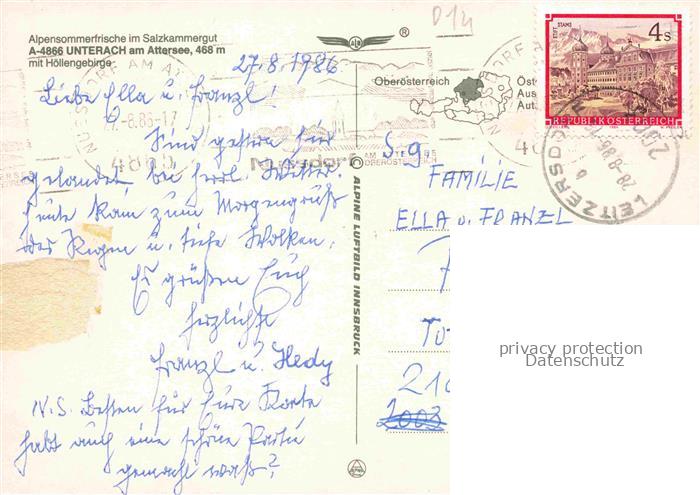 Alpensommerfrische im Salzkammergut
A-4866 UNTERACH am Attersee, 468 m
mit Höllengebirge
D 14
®
27.8.1986
Liebe Ella u. Franzl!
Sind gestern hier
gelandet bei herrl. Wetter.
heute kam zum Morgengruß
der Regen u. tiefe Wolken.
Es grüßen Euch
herzlichst
Franzl u. Hedy
N.S. Besten für Eure Karte
habt auch eine schöne Partie
gemacht was?
Oberösterreich
Öst
Aus
Aut
NUSSDORF AM AT
-8.86-17
4865
Nussdorf
AM
OBERÖSTER
STIFT STAMS
4 S
REPUBLIK ÖSTERREICH
LEITZERSD
28-8.86
ALPINE LUFTBILD INNSBRUCK
S.g.
FAMILIE
ELLA u. FRANZL
210
2003
privacy protection
Datenschutz